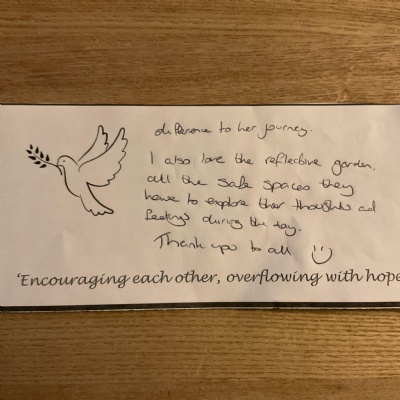 difference to her journey.
I also love the reflective garden,
all the safe spaces they
have to explore ther thoughts ad
feelings during the day.
Thank you to all :)
'Encouraging each other, overflowing with hope